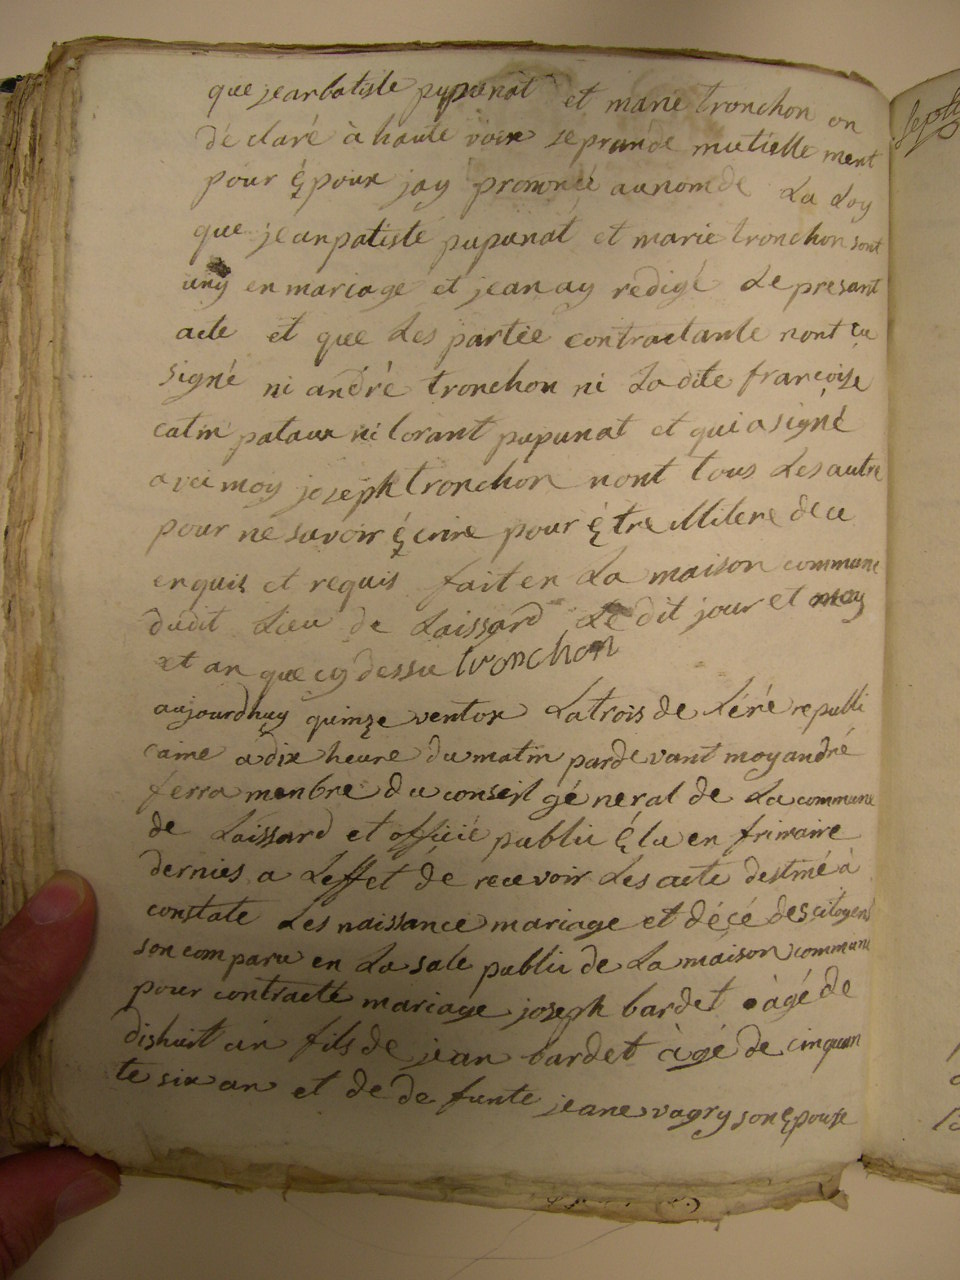 que jearbatiste pupunat et marie tronchon on
déclaré à haute voix se prende mutielle ment
pour époux jay prononcé aunomde La Loy
que jeanpatiste pupunat et marie tronchon sont
uny en mariage et jean ay redigé Le presant
acte et que Les partie contractante nont eu
signé ni andré tronchon ni Ladite françoise
catin pataux ni lorant pupunat et qui a signé
avec moy joseph tronchon nont tous Les autre
pour ne savoir écrire pour être de ce
enquis et requis fait en La maison commune
dudit Lieu de Laissard Le dit jour et moy
et an que cy dessu tronchon
aujourdhuy quinze ventox Latrois de Léré republi
caine a dix heure du matin pardevant moy andré
ferra menbre du conseil géneral de La commune
de Laissard et officié public élu en frimaire
dernies a Leffet de recevoir Les acte destiné à
constate Les naissance mariage et décé des citoyens
son comparu en La sale public de La maison commune
pour contracté mariage joseph bardet àgé de
dishuit an fils de jean bardet àgé de cinquan
te six an et de de funte jeane vagry son épouse